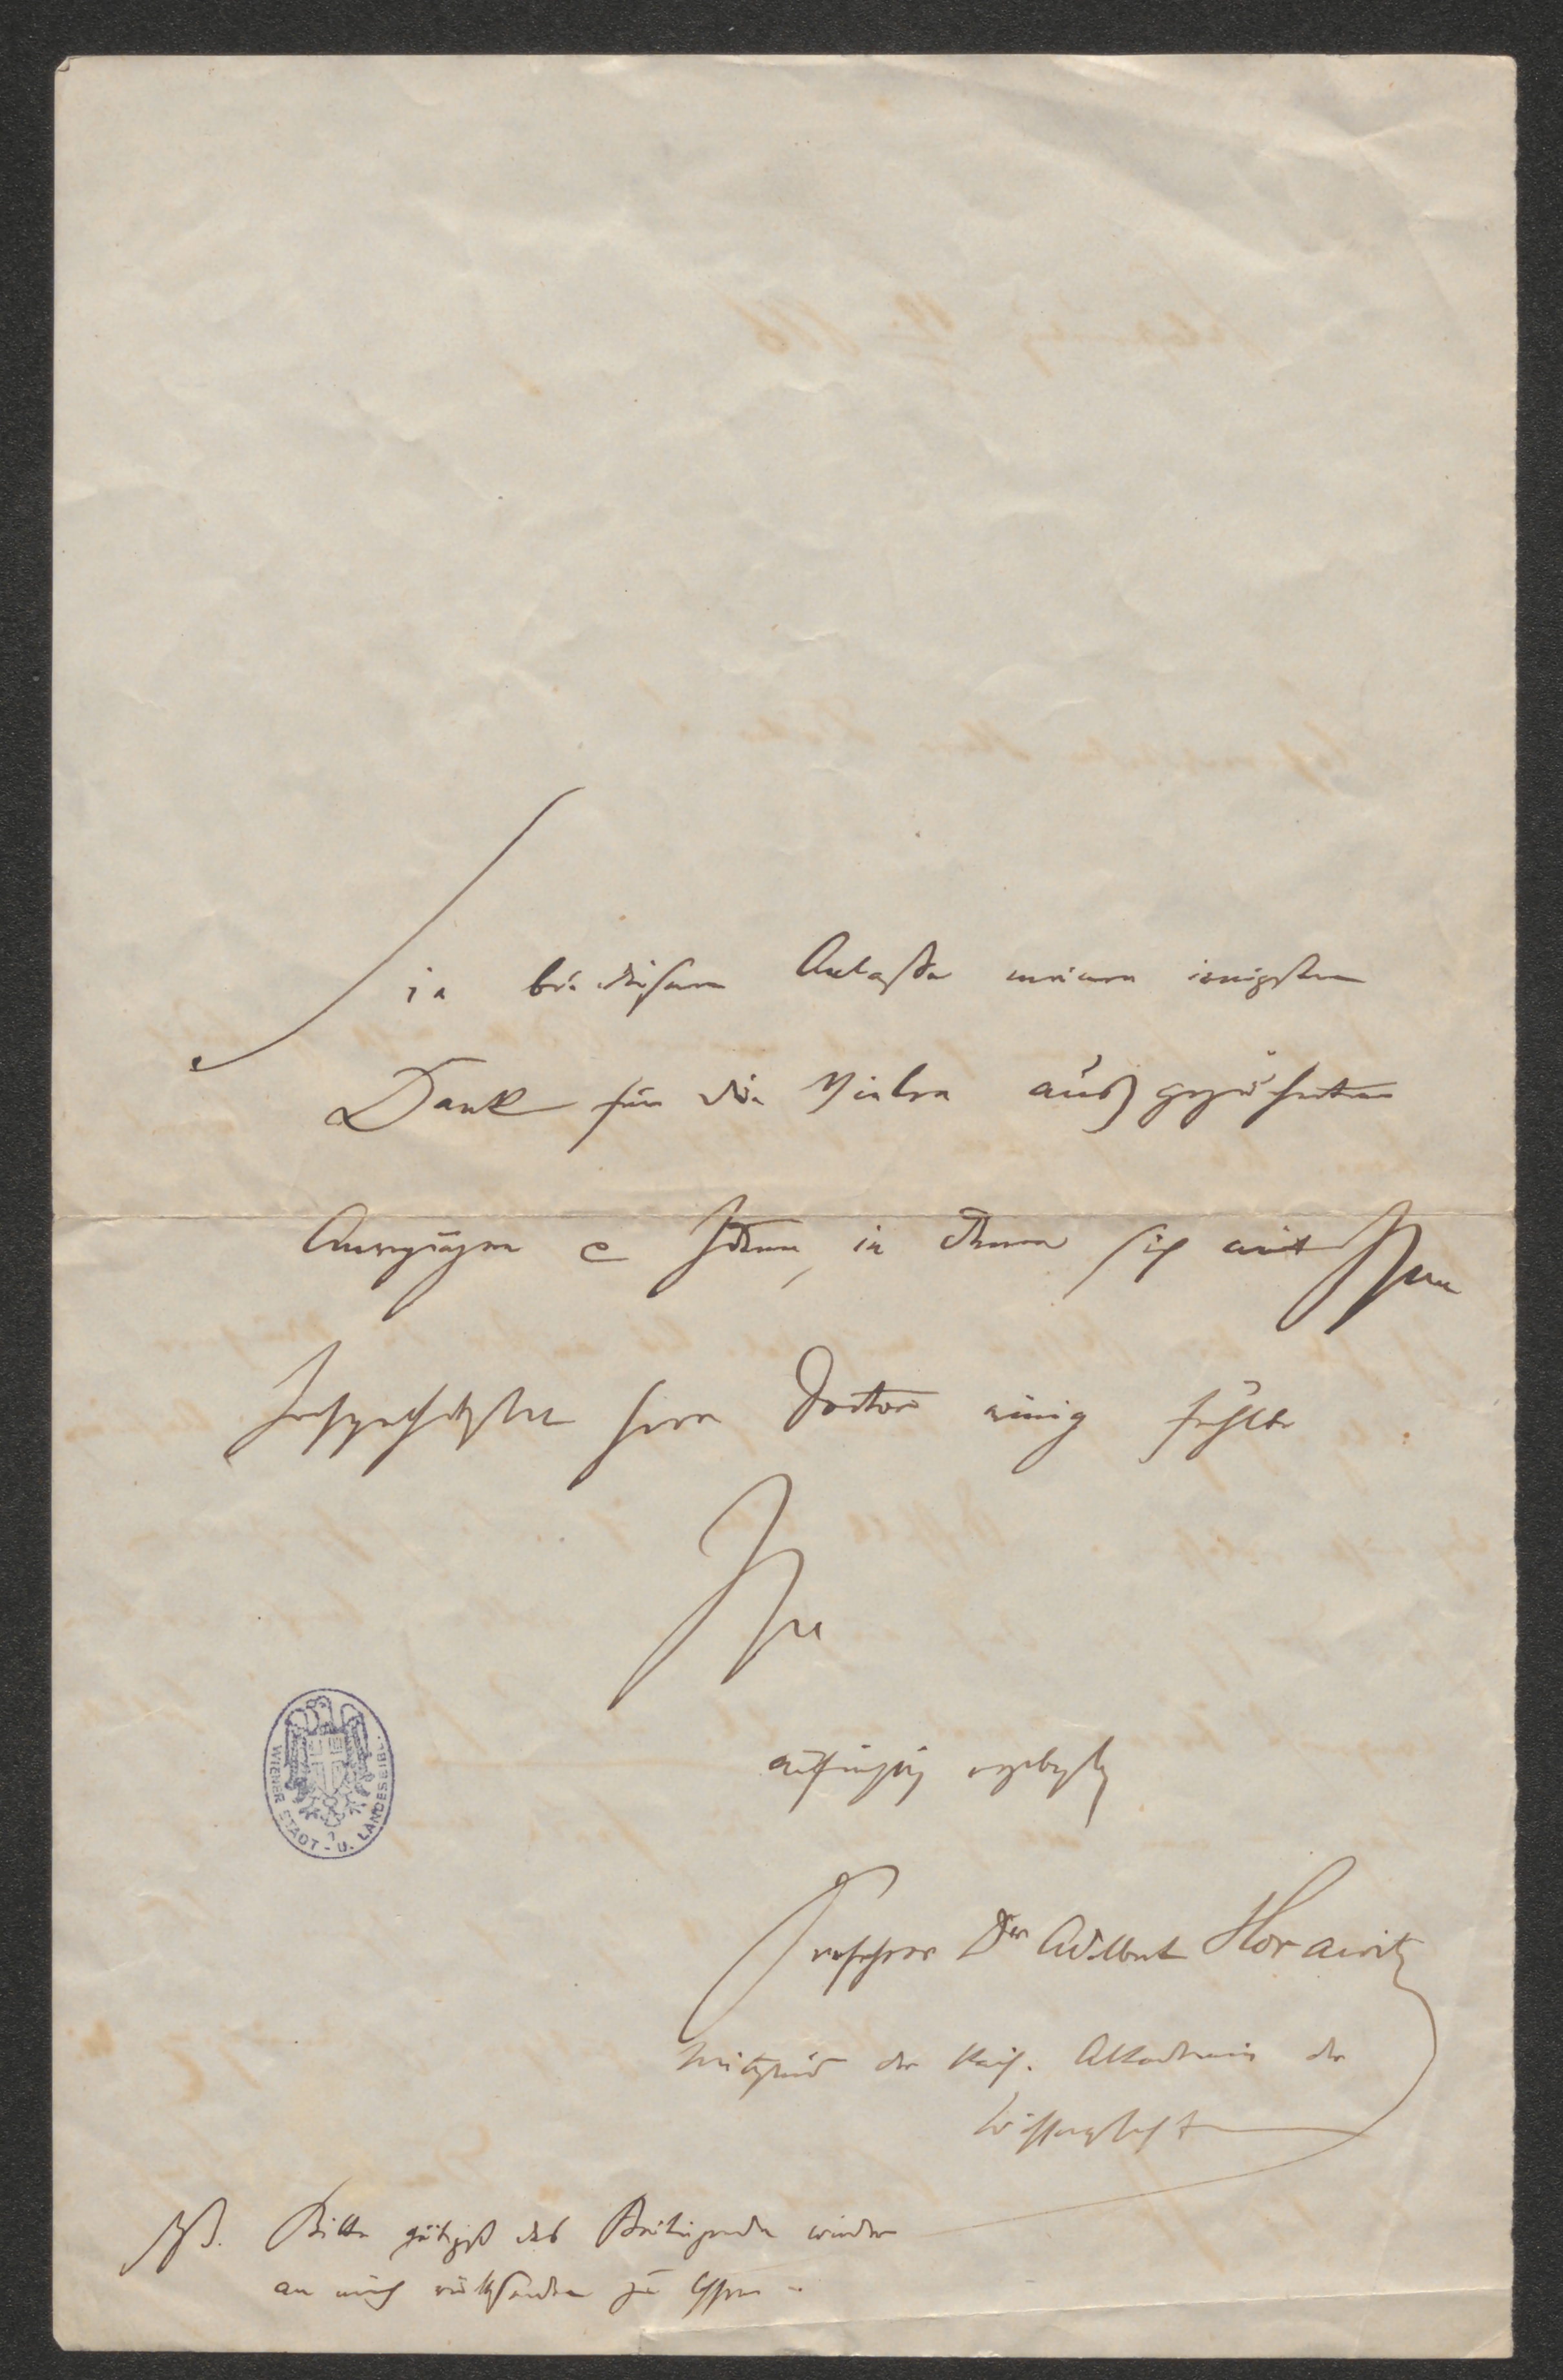 Sie bei diesem Anlaße meinen innigsten
Dank für die Vielen ausgezeichneten
Anregungen & Ideen, in denen sich mit Ihnen
hochgeschätzter Herr Doctor einig fühlte
Ihr
aufrichtig ergebenster
Professor Dr Adalbert Horawitz
Mitglied der Kais. Akademie der
Wissenschaften
WIENER STADT- U. LANDESBIBL.
NB. Bitte gütigst das Beiliegende wieder
an mich rücksenden zu lassen